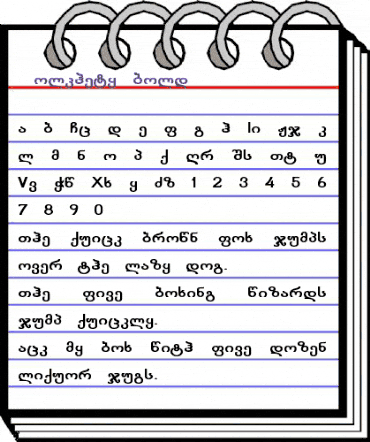 ოლკჰეტყ ბოლდ
ა ბ ჩც დ ე ფ გ ჰ სი ჟჯ კ
ლ მ ნ ო პ ქ ღრ შს თტ უ
Vვ ჭწ Xხ ყ ძზ 1 2 3 4 5 6
7 8 9 0
თჰე ქუიცკ ბროწნ ფოხ ჯუმპს
ოვერ ტჰე ლაზყ დოგ.
თჰე ფივე ბოხინგ წიზარდს
ჯუმპ ქუიცკლყ.
აცკ მყ ბოხ წიტჰ ფივე დოზენ
ლიქუორ ჯუგს.